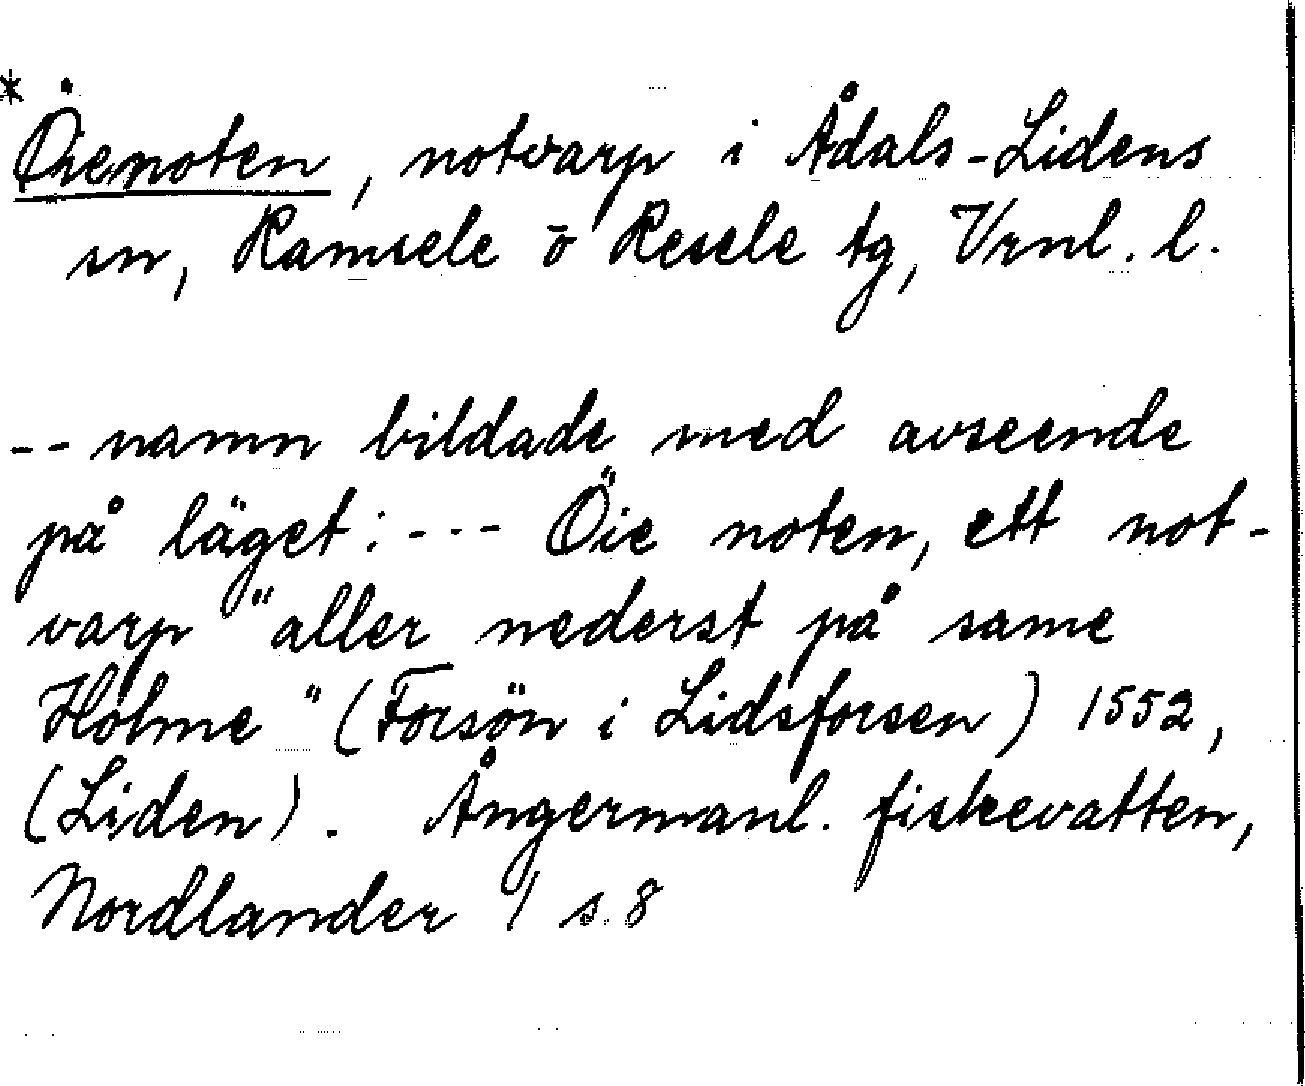 * Öienoten, notvarp i Ådals-Lidens
sn, Ramsele o Resele tg, Vrnl. l.
-- namn bildade med avseende
på läget: --- Öie noten, ett not-
varp "aller nederst på same
Holme" (Forsön i Lidsforsen) 1552,
(Liden). Ångermanl. fiskevatten,
Nordlander / s. 8